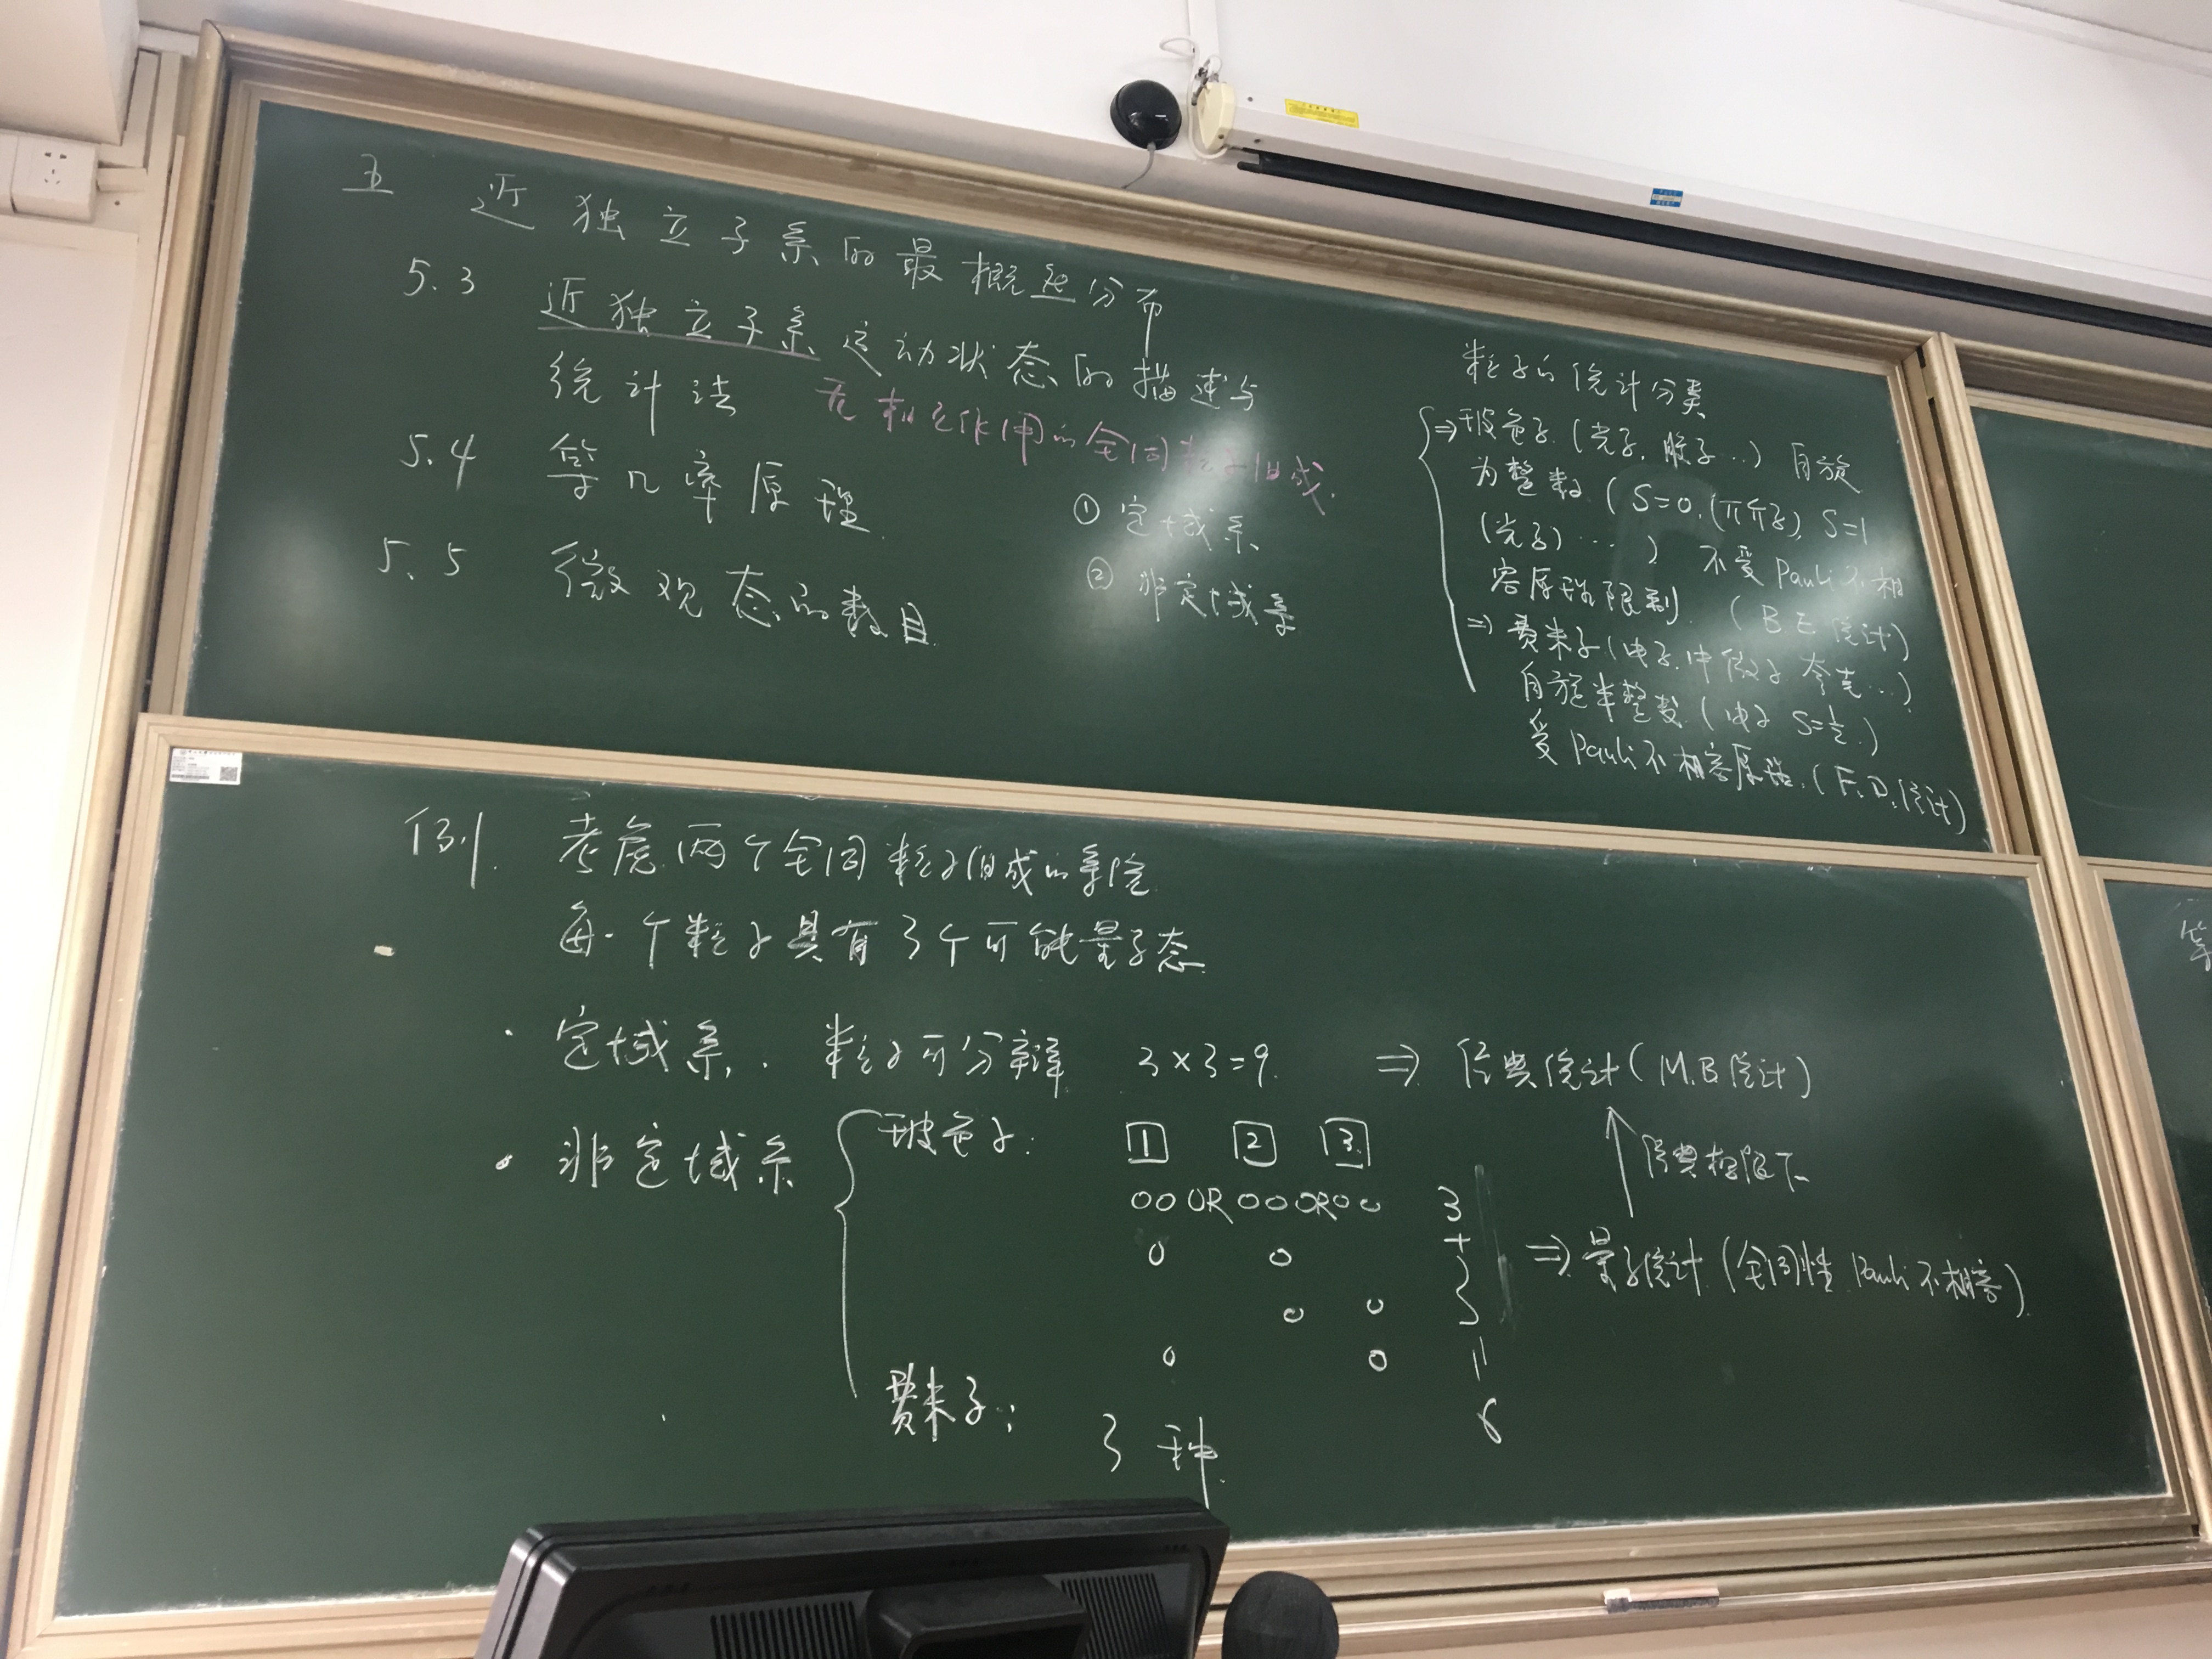 五 近独立子系的最概然分布
5.3 近独立子系运动状态的描述与
统计法 无相互作用的全同粒子组成.
5.4 等几率原理
5.5 微观态的数目
① 定域系
② 非定域系
粒子的统计分类
⇒玻色子(光子, 胶子…) 自旋
为整数 (S=0,(π介子), S=1
(光子) … ) 不受Pauli不相
容原理限制. (B E 统计)
⇒ 费米子(电子.中微子 夸克…)
自旋半整数 (电子 S=½.)
受Pauli不相容原理.(F.D.统计)
例. 考虑两个全同粒子组成的系统
每个粒子具有3个可能量子态
· 定域系. 粒子可分辨 3×3=9. ⇒ 经典统计(M.B统计)
经典极限下
· 非定域系 玻色子: 1 2 3
OO OR OO OR OO 3
+
O O 3
O O
O O 11
6
⇒ 量子统计 (全同性 Pauli不相容)
费米子: 3种.
等